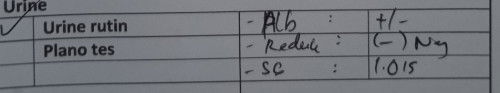 Urine
Urine rutin - Alb : +/-
Plano tes - Reduk : (-) Neg
- SG : 1.015